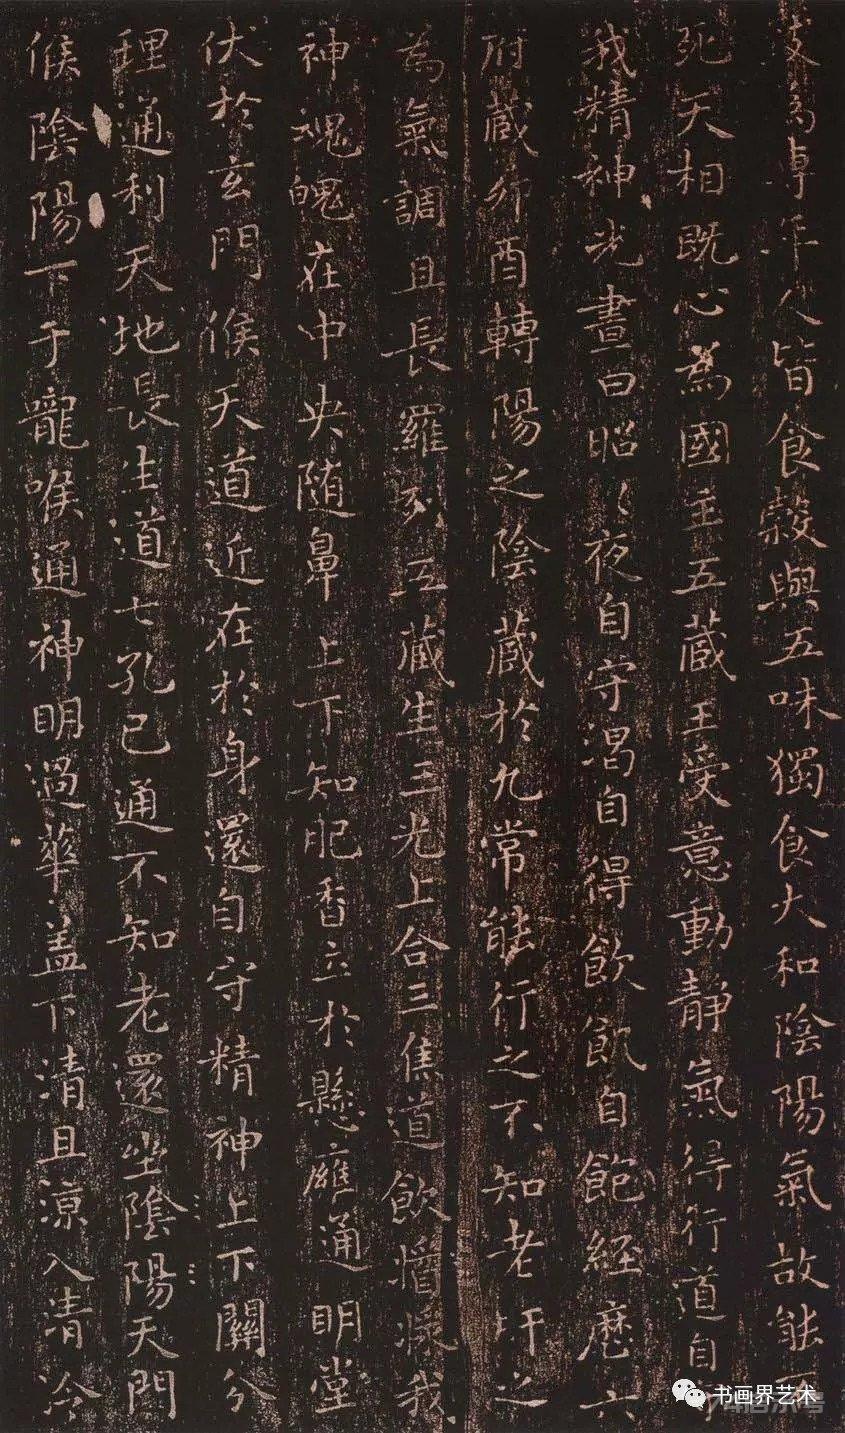 為專年人皆食穀與五味獨食大和陰陽氣故能
死天相既心為國主五藏王受意動靜氣得行道自守
我精神光晝日昭〻夜自守渴自得飲飢自飽經歷六
府藏卯酉轉陽之陰藏於九常能行之不知老肝之
為氣調且長羅列五藏生三光上合三焦道飲醬漿我
神魂魄在中央随鼻上下知肥香立於懸膺通明堂
伏於玄門候天道近在於身還自守精神上下關分
理通利天地長生道七孔已通不知老還坐陰陽天門
候陰陽下于嚨喉通神明過華盖下清且涼入清泠
书画界艺术